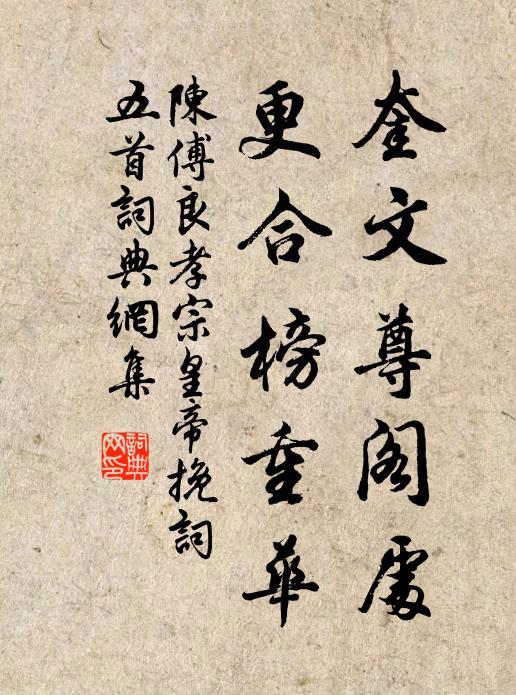 奎文尊阁處
更合榜重華
陳傅良孝宗皇帝挽詞
五首詞典網集
詞典
网印